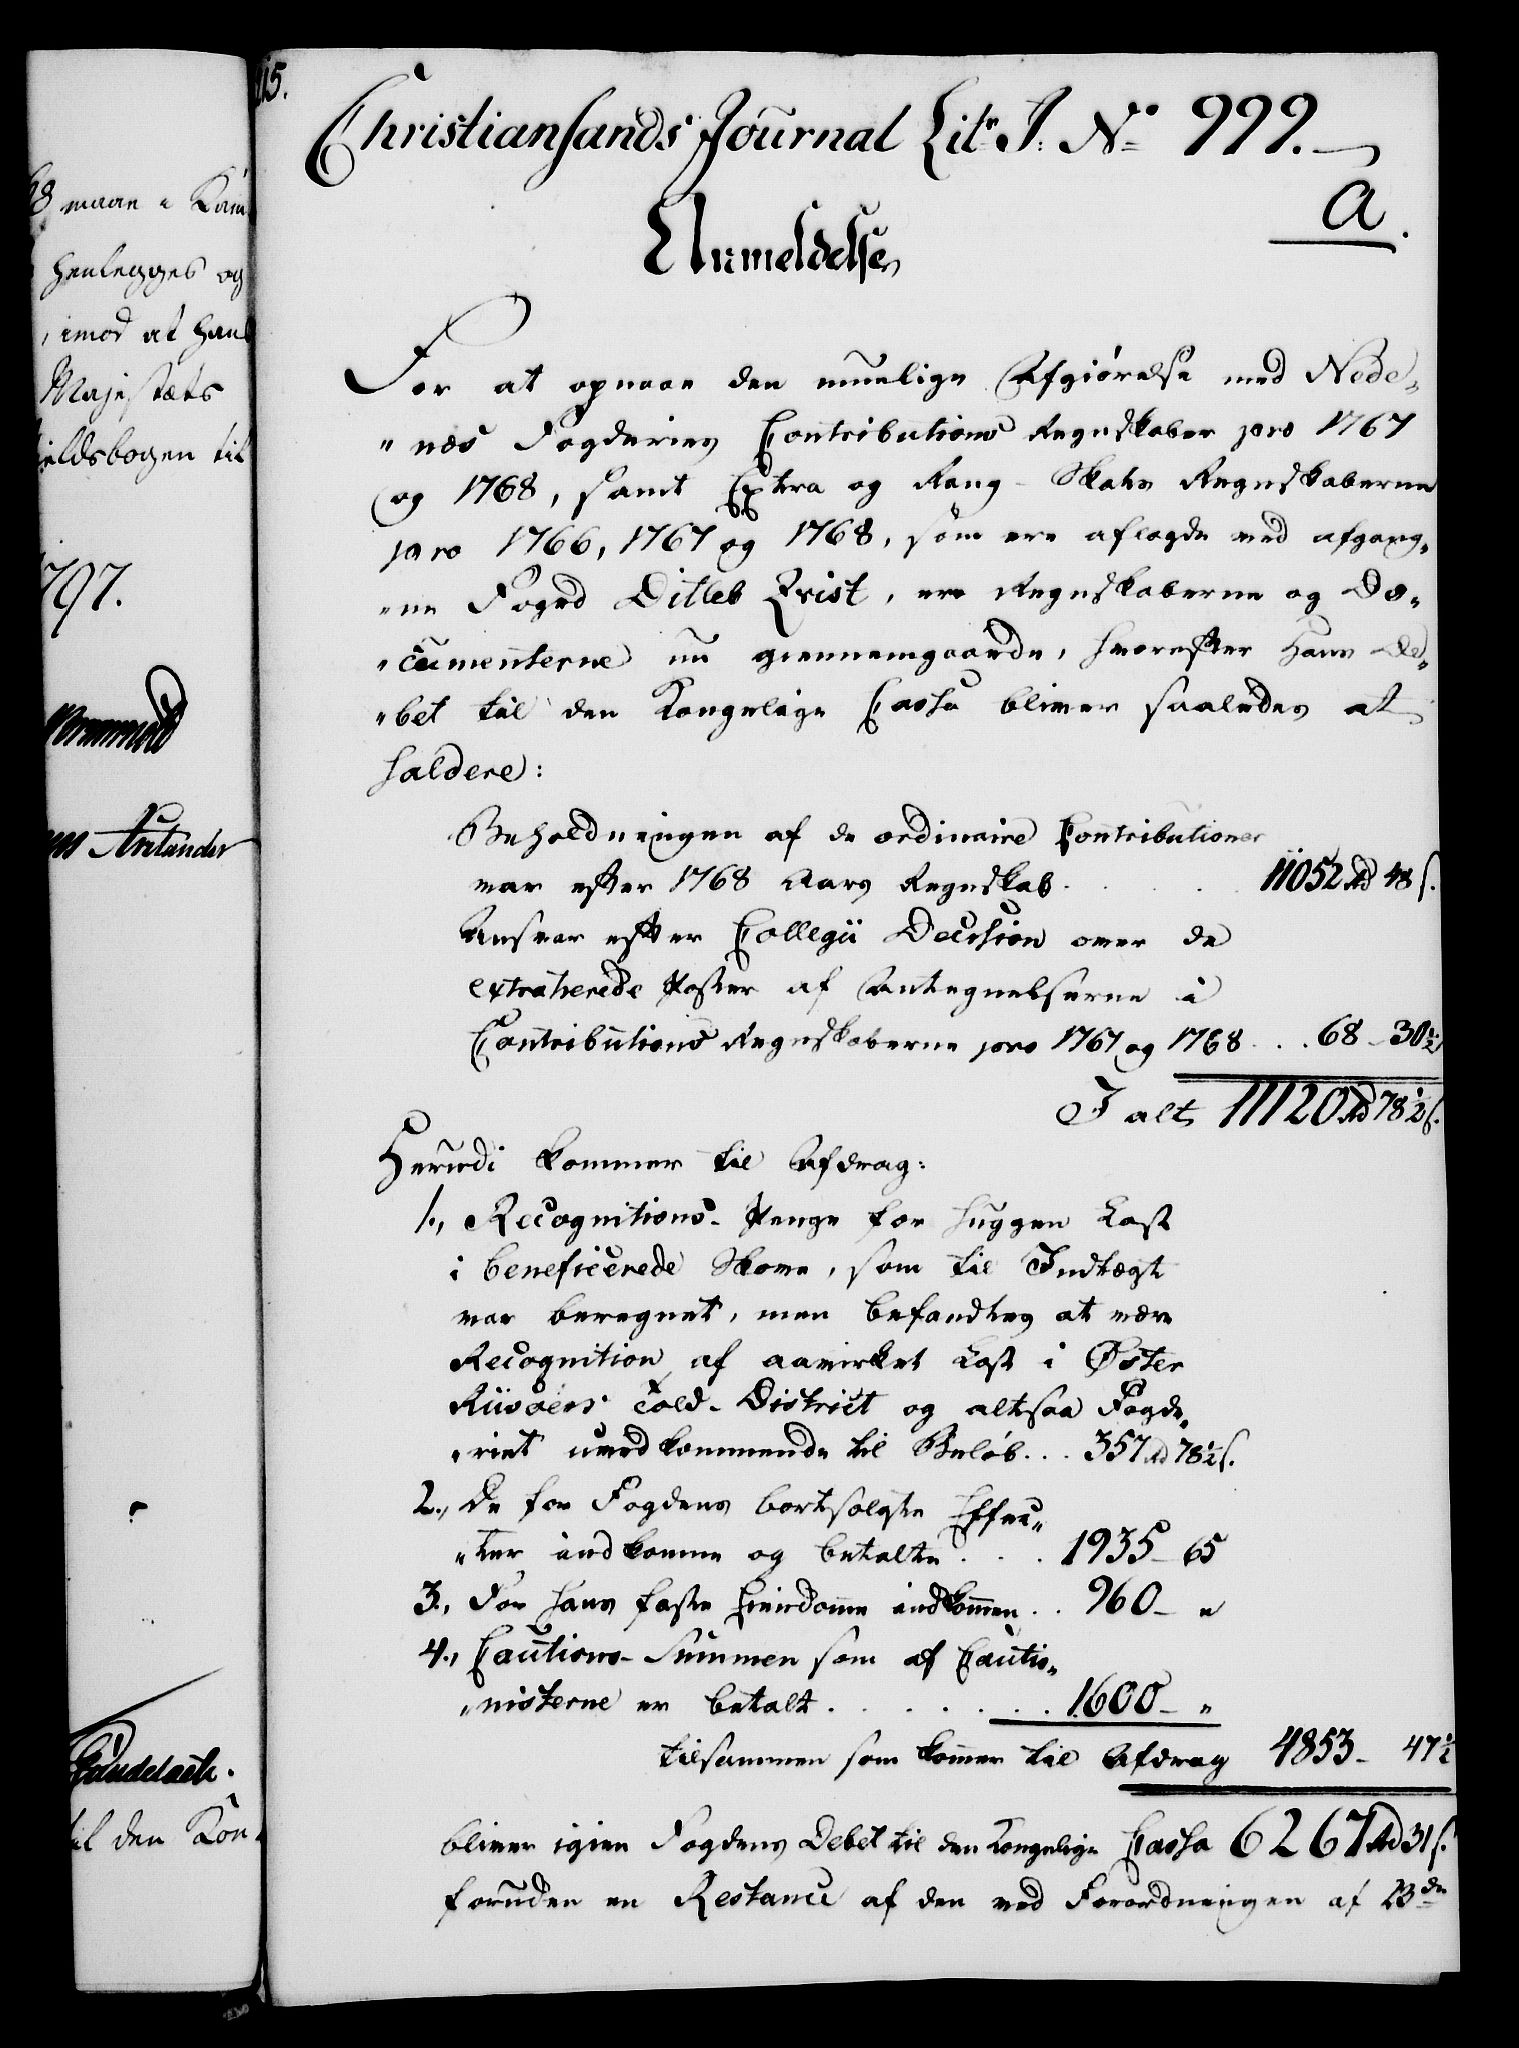 68 maae i Kam
henlegges og
, imod at han
Majestæts
ieldsbogen til
1797.
til den Kon-
115.
Christiansands Journal Litr J. No 999.
a.
Anmeldelse
For at opnaae den muelige Afgiørelse med Nede„
„næs Fogderies Contributions Regnskaber pro 1767
og 1768, samt Extra og Rang-Skats Regnskaberne
pro 1766, 1767 og 1768, som ere aflagde ved afgang„
„ne Foged Ditleb Qvist, ere Regnskaberne og Do„
„cumenterne nu giennemgaaede, hvorefter hans De„
„bet til den Kongelige Cassa bliver saaledes at
saldere:
Beholdningen af de ordinaire Contributioner
var efter 1768 Aars Regnskab . . . 11052 Rd 48 s.
Ansvar efter Collegii Decision over de
extraherede Poster af Antegnelserne i
Contributions Regnskaberne pro 1767 og 1768 . . . 68 - 30½
I alt 11120 Rd 78½ s.
Herudi kommer til Afdrag:
1., Recognitions-Penge for huggen Last
i beneficerede Skove, som til Indtægt
var beregnet, men befandtes at være
Recognition af aavirket Last i Øster
Riisøers Told-District og altsaa Fogde„
„riet uvedkommende til Beløb . . . 357 Rd 78½ s.
2., De for Fogdens bortsolgte Effec„
„ter indkomne og betalte . . . 1935 - 65
3., For hans faste Eiendomme indkommen . . 960 - „
4., Cautions-Summen som af Cautio„
„nisterne er betalt . . . . . . . 1600 - „
tilsammen som kommer til Afdrag 4853 - 47½
bliver igien Fogdens Debet til den Kongelige Cassa 6267 Rd 31 s.
foruden en Restance af den ved Forordningen af 23de